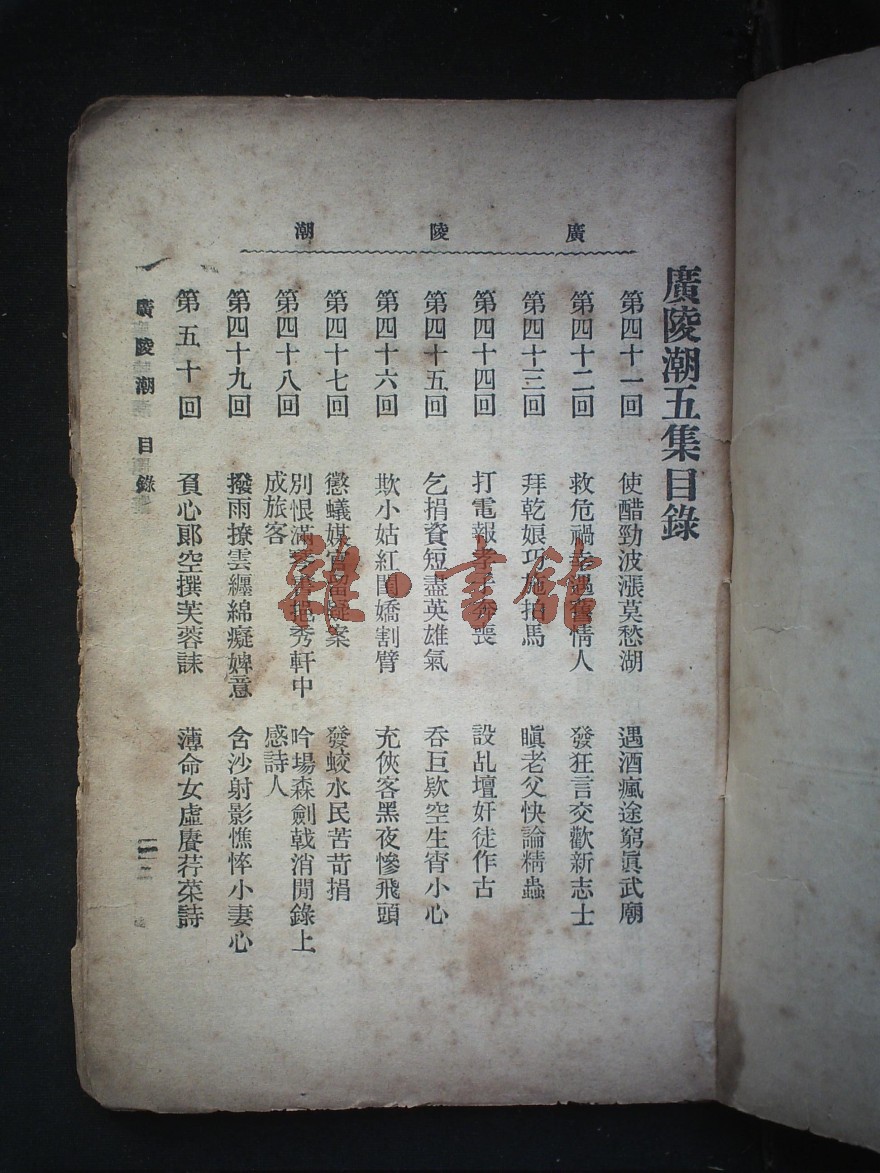 廣陵潮
廣陵潮五集目錄
第四十一回 使醋勁波漲莫愁湖 遇酒瘋途窮眞武廟
第四十二回 救危禍幸遇舊情人 發狂言交歡新志士
第四十三回 拜乾娘巧施拍馬 瞋老父快論精蟲
第四十四回 打電報孝子奔喪 設乩壇奸徒作古
第四十五回 乞捐資短盡英雄氣 吞巨欵空生宵小心
第四十六回 欺小姑紅閨嬌割臂 充俠客黑夜慘飛頭
第四十七回 懲蟻媒官留疑案 發蛟水民苦苛捐
第四十八回 別恨滿 秀軒中成旅客 吟場森劍戟消閒錄上感詩人
第四十九回 撥雨撩雲纏綿癡婢意 含沙射影憔悴小妻心
第五十回 負心郞空撰芙蓉誄 薄命女虛賡荇菜詩
廣陵潮 目錄
一
雜·書館